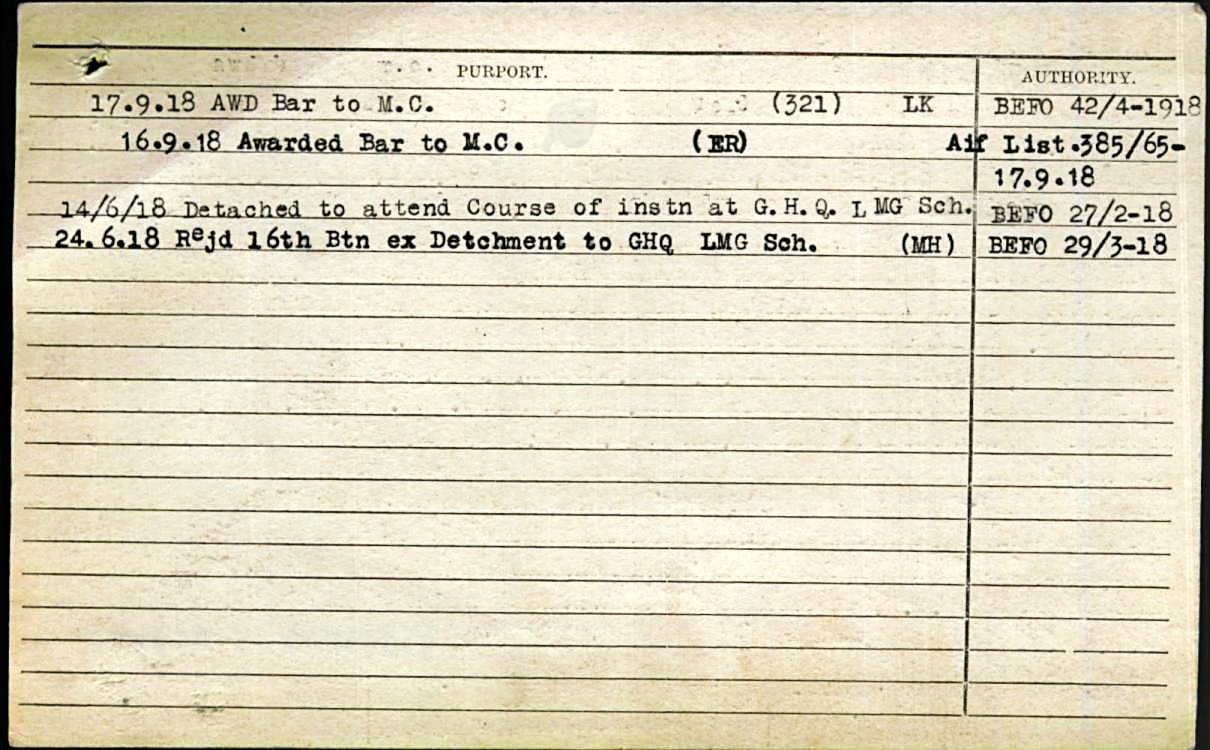 PURPORT. AUTHORITY.
17.9.18 AWD Bar to M.C. (321) LK BEFO 42/4-1918
16.9.18 Awarded Bar to M.C. (ER) Aif List.385/65-
17.9.18
14/6/18 Detached to attend Course of instn at G.H.Q. L MG Sch. BEFO 27/2-18
24.6.18 Rejd 16th Btn ex Detchment to GHQ LMG Sch. (MH) BEFO 29/3-18